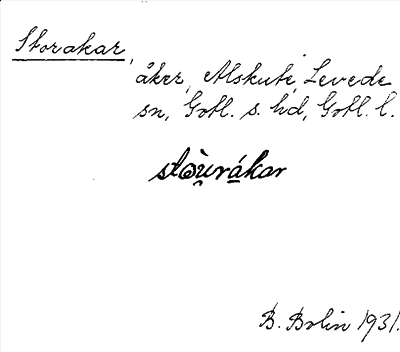 Storakar,
åker, Alskute, Levede
sn, Gotl. s. hd, Gotl. l.
stàu̯rákar
B. Bolin 1931.